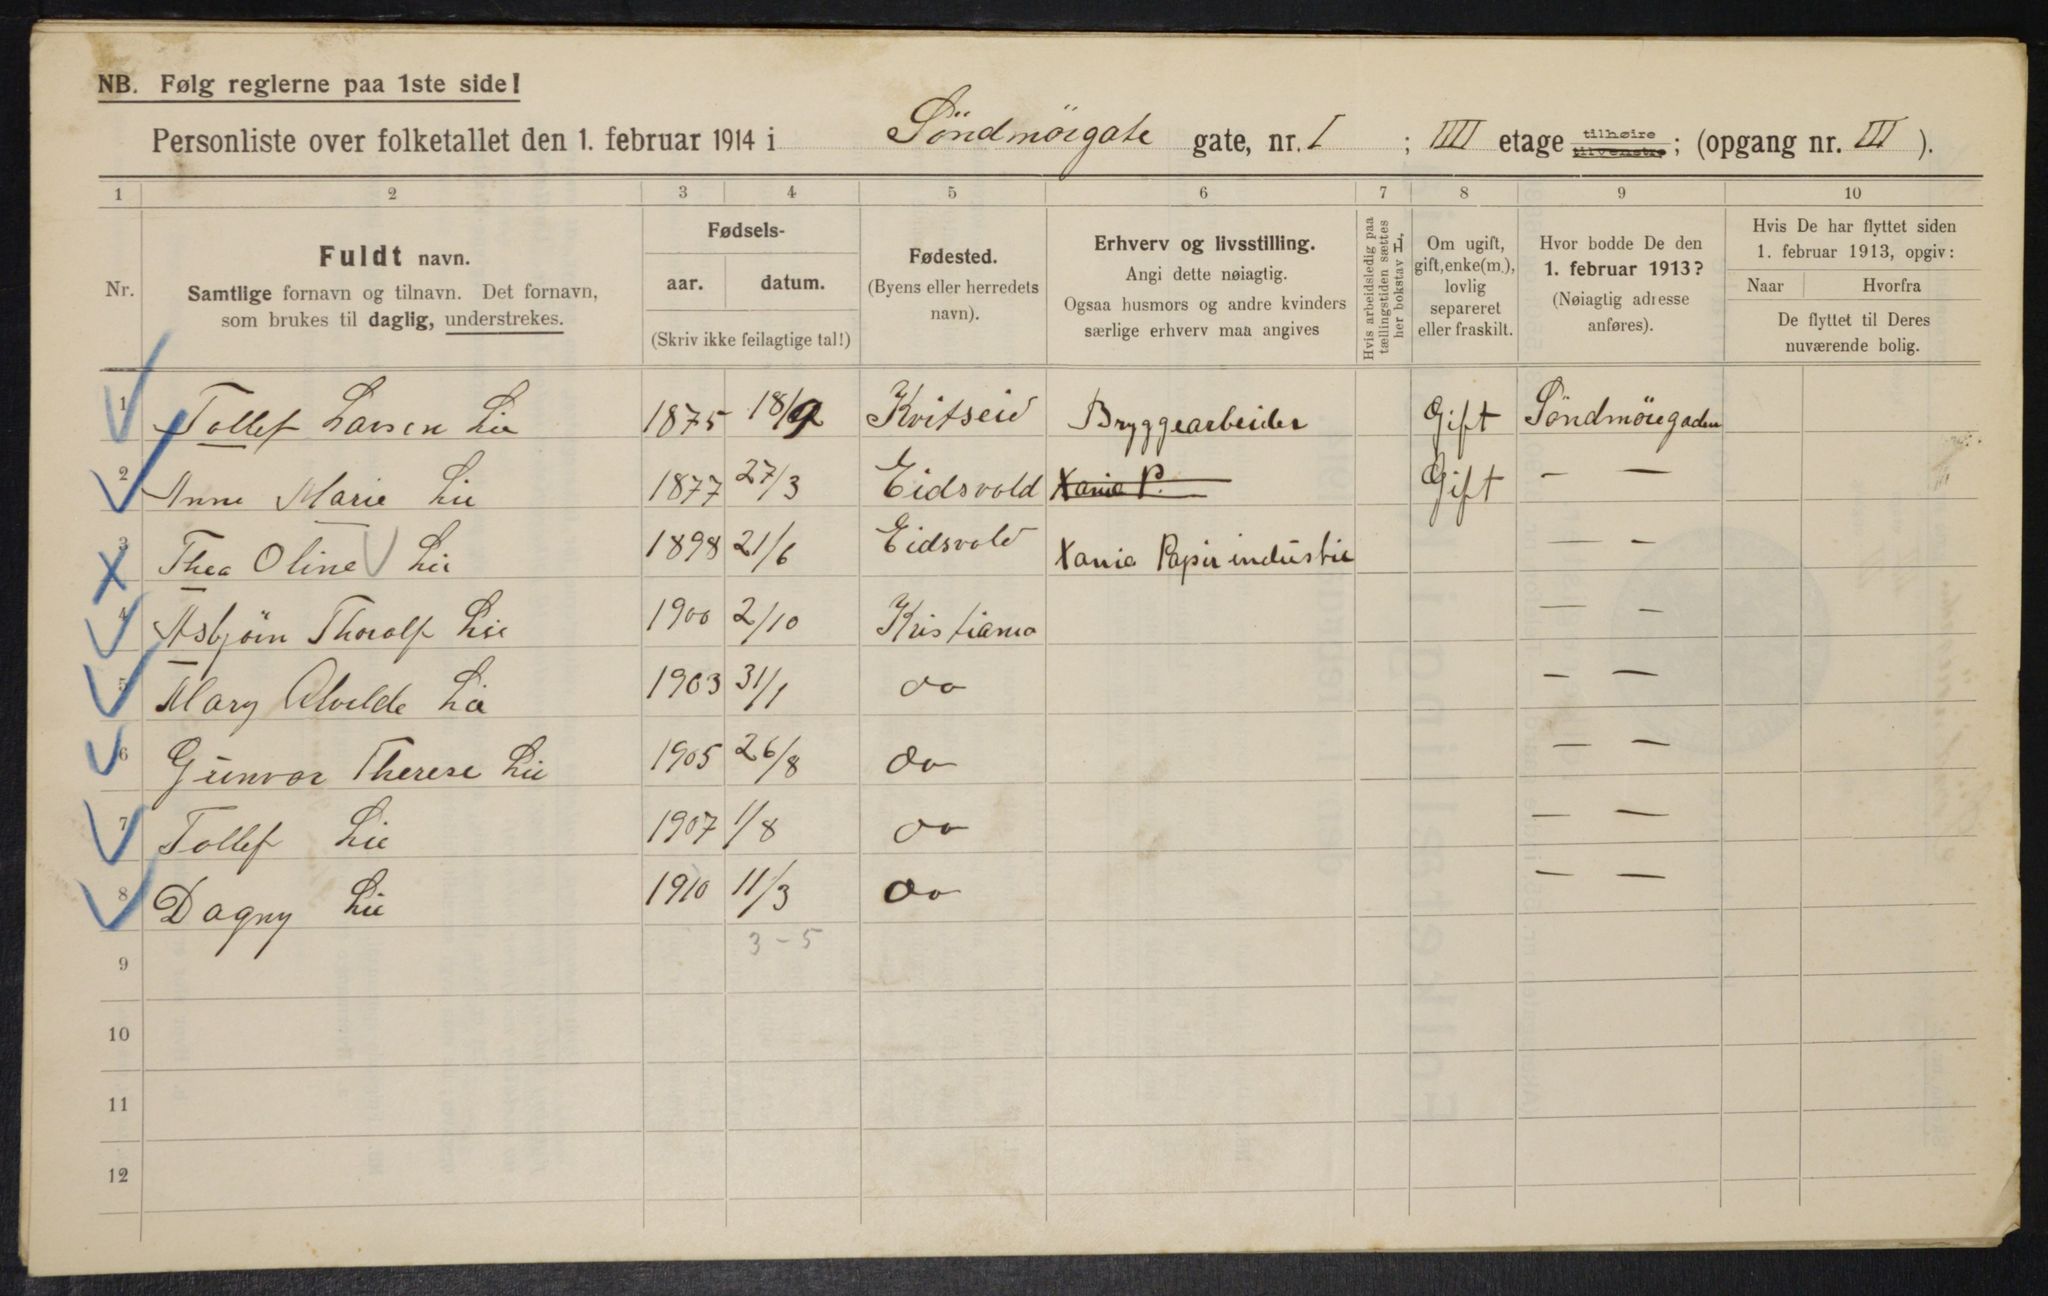 NB. Følg reglerne paa 1ste side!
Personliste over folketallet den 1. februar 1914 i Söndmörgate gate, nr. I ; IIII etage tilhøire tilvenstre ; (opgang nr. III ).
1 2 3 4 5 6 7 8 9 10
Nr.
Fuldt navn.
Samtlige fornavn og tilnavn. Det fornavn,
som brukes til daglig, understrekes.
Fødsels-
aar. datum.
(Skriv ikke feilagtige tal!)
Fødested.
(Byens eller herredets
navn).
Erhverv og livsstilling.
Angi dette nøiagtig.
Ogsaa husmors og andre kvinders
særlige erhverv maa angives
Hvis arbeidsledig paa
tællingstiden sættes
her bokstav H.
Om ugift,
gift, enke(m.),
lovlig
separeret
eller fraskilt.
Hvor bodde De den
1. februar 1913?
(Nøiagtig adresse
anføres).
Hvis De har flyttet siden
1. februar 1913, opgiv:
Naar Hvorfra
De flyttet til Deres
nuværende bolig.
1 Tollef Larsen Lie 1875 18/9 Kvitseid Bryggearbeider Gift Söndmöregaden
2 Anne Marie Lie 1877 27/3 Eidsvold Xania P. Gift — —
3 Thea Oline Lie 1898 21/6 Eidsvold Xania Papirindustrie — —
4 Asbjörn Thoralf Lie 1900 2/10 Kristiania — —
5 Mary Alvilde Lie 1903 31/1 do — —
6 Gunvor Therese Lie 1905 26/8 do — —
7 Tollef Lie 1907 1/8 do — —
8 Dagny Lie 1910 11/3 do — —
3 - 5
9
10
11
12